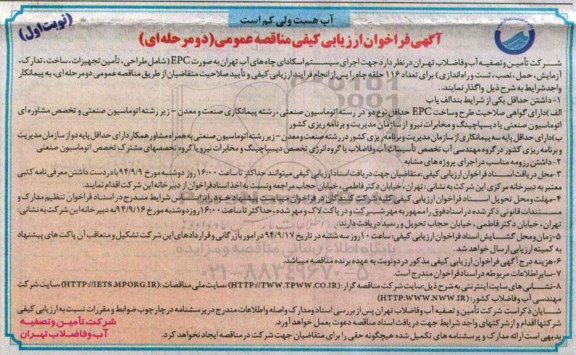 آب هست ولی کم است
(نوبت اول)
آگهی فراخوان ارزیابی کیفی مناقصه عمومی (دو مرحله ای)
شرکت تأمین و تصفیه آب و فاضلاب تهران در نظر دارد جهت اجرای سیستم اسکادای چاه های آب تهران به صورت EPC (شامل طراحی، تأمین تجهیزات، ساخت، تدارک،
آزمایش، حمل، نصب، تست و راه اندازی) برای تعداد ۱۱۶ حلقه چاه را پس از انجام فرایند ارزیابی کیفی و تأیید صلاحیت متقاضیان از طریق مناقصه عمومی دو مرحله ای، به پیمانکار
واجد شرایط به شرح ذیل واگذار نمایند.
۱-داشتن حداقل یکی از شرایط بند الف یا ب
الف)دارای گواهی صلاحیت طرح و ساخت EPC حداقل نوع دو در رسته اتوماسیون صنعتی، رشته پیمانکاری صنعت و معدن - زیر رشته اتوماسیون صنعتی و تخصص مشاوره ای
اتوماسیون صنعتی یا دیسپاچینگ و مخابرات نیرو از سازمان مدیریت و برنامه ریزی کشور
ب)دارای حداقل پایه سه پیمانکاری از سازمان مدیریت و برنامه ریزی کشور در رشته صنعت و معدن - زیر رشته اتوماسیون صنعتی به همراه مشاور همکار دارای حداقل پایه دو از سازمان مدیریت
و برنامه ریزی کشور در گروه مهندسی آب تخصص تأسیسات آب و فاضلاب یا گروه انرژی تخصص دیسپاچینگ و مخابرات نیرو یا گروه تخصصهای مشترک تخصص اتوماسیون صنعتی
۲-داشتن رزومه مناسب در اجرای پروژه های مشابه
۳-محل دریافت اسناد فراخوان ارزیابی کیفی: متقاضیان جهت دریافت اسناد ارزیابی کیفی میتوانند حداکثر تا ساعت ۱۶:۰۰ روز دوشنبه مورخ ۹۴/۹/۹ با در دست داشتن معرفی نامه کتبی
معتبر به دبیرخانه مرکزی این شرکت به نشانی: تهران، خیابان دکتر فاطمی، خیابان حجاب مراجعه و نسبت به اخذ اسناد فراخوان از دبیرخانه این شرکت اقدام نمایند.
۴-مهلت و محل تحویل اسناد فراخوان ارزیابی کیفی: کلیه شرکت کنندگان در فراخوان می بایست پیشنهاد خود را بر اساس شرایط مندرج در اسناد فراخوان تنظیم مدارک و
مستندات قانونی ذکر شده در اسناد فوق را ممهور به مهر شرکت و در پاکت لاک و مهر شده، حداکثر تا ساعت ۱۶:۰۰ روز دوشنبه مورخ ۹۴/۹/۱۶ به دبیرخانه این شرکت به نشانی:
تهران، خیابان دکتر فاطمی، خیابان حجاب تحویل و رسید دریافت دارند.
۵-زمان و محل گشایش اسناد فراخوان ارزیابی کیفی: ساعت ۱۰ روز سه شنبه مورخ ۹۴/۹/۱۷ در امور بازرگانی و قراردادهای این شرکت تشکیل و متعاقب آن پاکت های پیشنهاد
به کمیته ارزیابی ارسال خواهد شد.
۶-هزینه درج آگهی فراخوان ارزیابی کیفی مذکور در دو نوبت به عهده برنده مناقصه میباشد.
۷-سایر اطلاعات مربوطه در اسناد فراخوان مندرج است.
۸-نشانی های سایت اینترنتی به شرح ذیل: سایت شرکت مناقصه گزار: (HTTP//TWW.TPWW.CO.IR) سایت ملی مناقصات: (HTTP//IETS.MPORG.IR) سایت شرکت
مهندسی آب و فاضلاب کشور: (HTTP/WWW.NWW.IR)
شایان ذکر است شرکت تأمین و تصفیه آب و فاضلاب تهران پس از بررسی اسناد و مدارک واصله و اطلاعات مندرج در پرسشنامه در چارچوب ضوابط و مقررات نسبت به ارزیابی کیفی
شرکتها اقدام و از شرکتهای واجد شرایط جهت دریافت اسناد مناقصه دعوت بعمل خواهد آورد.
بدیهی است ارائه مدارک و پرسشنامه های تکمیل شده هیچگونه حقی را برای متقاضیان جهت شرکت در مناقصه ایجاد نخواهد کرد.
شرکت تأمین و تصفیه
آب و فاضلاب تهران
۰۲۱-۸۸۳۴۹۶۷۰-۵